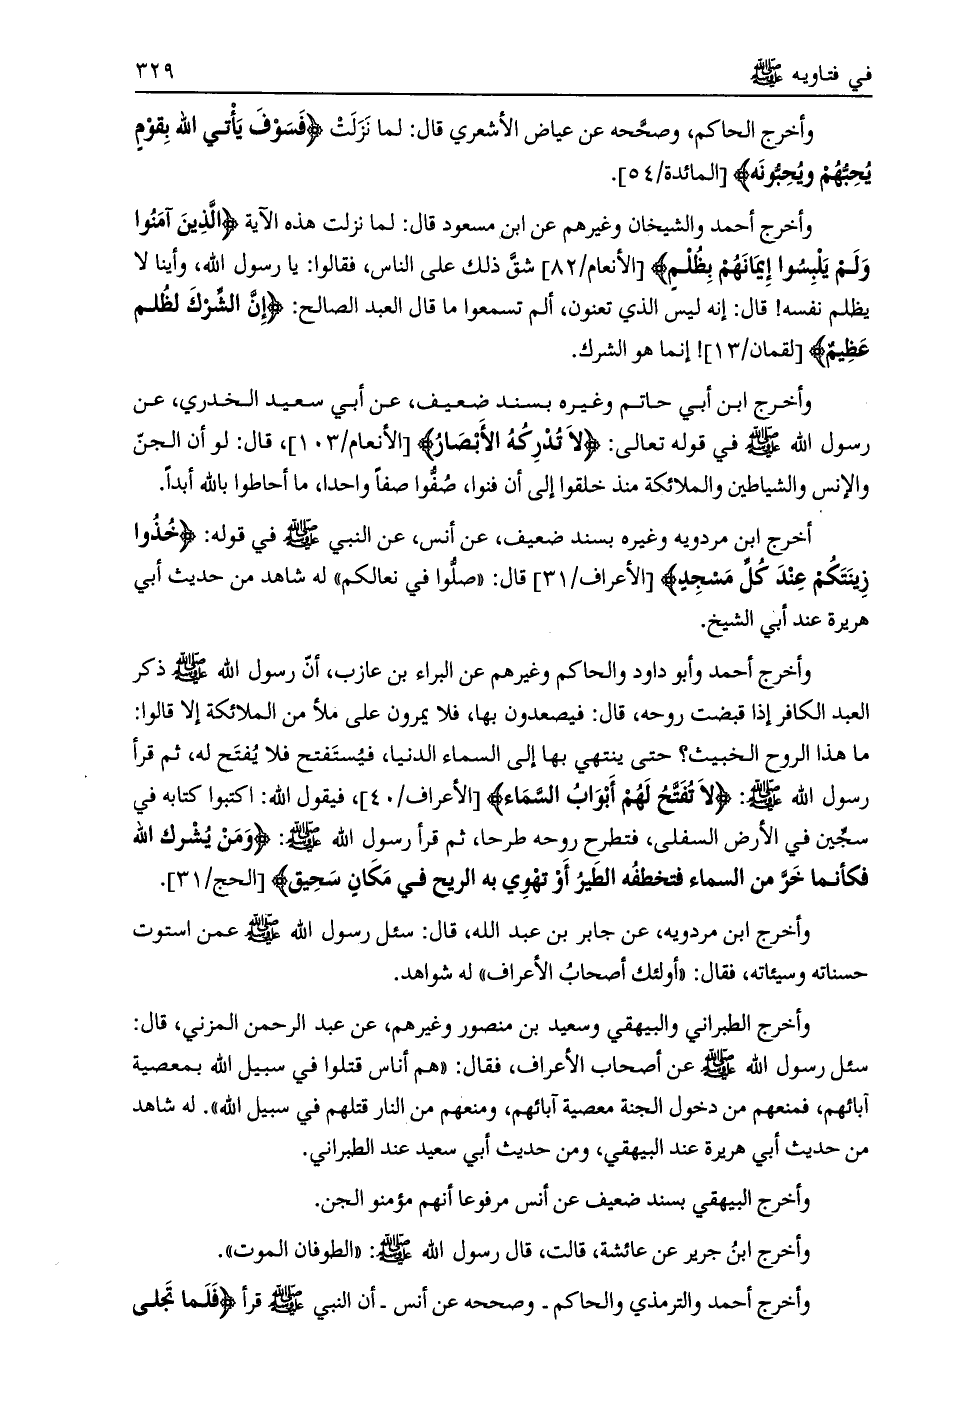 في فتاويه ﷺ ٣٢٩
وأخرج الحاكم، وصحَّحه عن عياض الأشعري قال: لما نَزَلَتْ ﴿فَسَوْفَ يَأْتي الله بِقوْمٍ
يُحِبُّهُمْ ويُحِبُّونَه﴾ [المائدة/٥٤].
وأخرج أحمد والشيخان وغيرهم عن ابن مسعود قال: لما نزلت هذه الآية ﴿الَّذِينَ آمَنُوا
وَلَمْ يَلْبِسُوا إِيمَانَهُمْ بِظُلْمٍ﴾ [الأنعام/٨٢] شقَّ ذلك على الناس، فقالوا: يا رسول الله، وأينا لا
يظلم نفسه! قال: إنه ليس الذي تعنون، ألم تسمعوا ما قال العبد الصالح: ﴿إِنَّ الشِّرْكَ لظُلم
عَظِيمٌ﴾ [لقمان/١٣]! إنما هو الشرك.
وأخرج ابن أبي حاتم وغيره بسند ضعيف، عن أبي سعيد الخدري، عن
رسول الله ﷺ في قوله تعالى: ﴿لاَ تُدْرِكُهُ الأَبْصَارُ﴾ [الأنعام/١٠٣]، قال: لو أن الجنّ
والإنس والشياطين والملائكة منذ خلقوا إلى أن فنوا، صُفُّوا صفاً واحدا، ما أحاطوا بالله أبداً.
أخرج ابن مردويه وغيره بسند ضعيف، عن أنس، عن النبي ﷺ في قوله: ﴿خُذُوا
زِينَتَكُمْ عِنْدَ كُلِّ مَسْجِدٍ﴾ [الأعراف/٣١] قال: «صلُّوا في نعالكم» له شاهد من حديث أبي
هريرة عند أبي الشيخ.
وأخرج أحمد وأبو داود والحاكم وغيرهم عن البراء بن عازب، أنّ رسول الله ﷺ ذكر
العبد الكافر إذا قبضت روحه، قال: فيصعدون بها، فلا يمرون على ملأ من الملائكة إلا قالوا:
ما هذا الروح الخبيث؟ حتى ينتهي بها إلى السماء الدنيا، فيُستَفتح فلا يُفتَح له، ثم قرأ
رسول الله ﷺ: ﴿لاَ تُفَتَّحُ لَهُمْ أَبْوَابُ السَّمَاء﴾ [الأعراف/٤٠]، فيقول الله: اكتبوا كتابه في
سجّين في الأرض السفلى، فتطرح روحه طرحا، ثم قرأ رسول الله ﷺ: ﴿وَمَنْ يُشْرك الله
فكأنما خَرَّ من السماء فتخطفُه الطَيرُ أَوْ تهْوِي به الريح في مَكَانٍ سَحِيق﴾ [الحج/٣١].
وأخرج ابن مردويه، عن جابر بن عبد الله، قال: سئل رسول الله ﷺ عمن استوت
حسناته وسيئاته، فقال: «أولئك أصحابُ الأعراف» له شواهد.
وأخرج الطبراني والبيهقي وسعيد بن منصور وغيرهم، عن عبد الرحمن المزني، قال:
سئل رسول الله ﷺ عن أصحاب الأعراف، فقال: «هم أناس قتلوا في سبيل الله بمعصية
آبائهم، فمنعهم من دخول الجنة معصية آبائهم، ومنعهم من النار قتلهم في سبيل الله». له شاهد
من حديث أبي هريرة عند البيهقي، ومن حديث أبي سعيد عند الطبراني.
وأخرج البيهقي بسند ضعيف عن أنس مرفوعا أنهم مؤمنو الجن.
وأخرج ابنُ جرير عن عائشة، قالت، قال رسول الله ﷺ: «الطوفان الموت».
وأخرج أحمد والترمذي والحاكم - وصححه عن أنس - أن النبي ﷺ قرأ ﴿فَلَما تَجلى